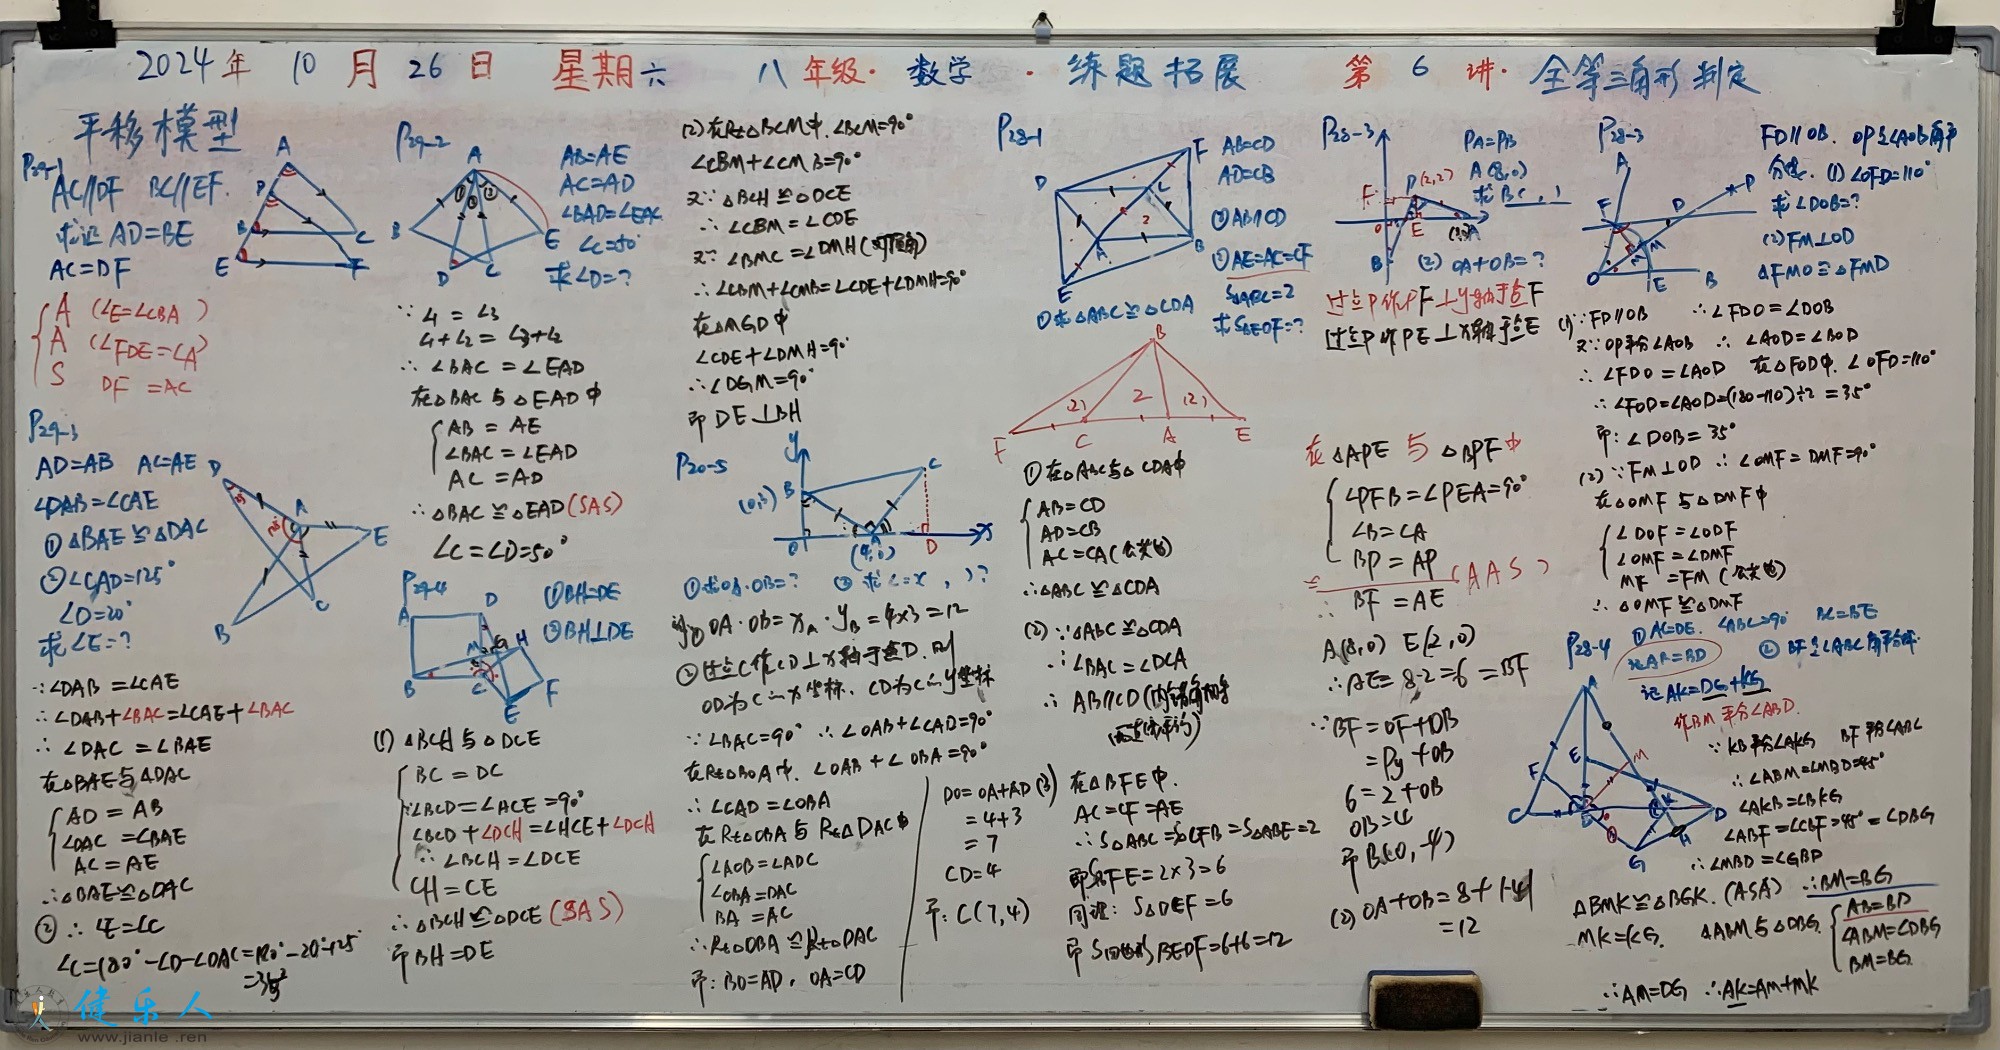 2024年 10 月 26 日 星期六 八年级· 数学 · 练题拓展 第 6 讲· 全等三角形判定
平移模型
P29-1
AC∥DF BC∥EF.
求证 AD=BE
AC=DF
A D B C E F
A (∠E=∠CBA)
A (∠FDE=∠A)
S DF =AC
P29-3
AD=AB AC=AE
∠DAB=∠CAE
① △BAE≌△DAC
②∠CAD=125°
∠D=20°
求∠E=?
D A E C B
∵∠DAB=∠CAE
∴∠DAB+∠BAC=∠CAE+∠BAC
∴ ∠DAC =∠BAE
在△BAE与△DAC
AD = AB
∠DAC =∠BAE
AC = AE
∴△BAE≌△DAC
② ∴ ∠E=∠C
∠C=180°-∠D-∠DAC=180°-20°-125°
=35°
P29-2
A B D C E
AB=AE
AC=AD
∠BAD=∠EAC
∠C=50°
求∠D=?
∵ ∠1 = ∠3
∠1+∠2 = ∠3+∠2
∴ ∠BAC = ∠EAD
在△BAC 与 △EAD 中
AB = AE
∠BAC = ∠EAD
AC = AD
∴ △BAC ≌ △EAD(SAS)
∠C=∠D=50°
P29-4
①BH=DE
②BH⊥DE
A D M G H B C E F
(1) △BCH 与 △DCE
BC = DC
∵∠BCD=∠HCE=90°
∠BCD+∠DCH=∠HCE+∠DCH
∴ ∠BCH=∠DCE
CH=CE
∴△BCH≌△DCE(SAS)
即BH=DE
(2) 在Rt△BCM中.∠BCM=90°
∠CBM+∠CMB=90°
又∵ △BCH ≌ △DCE
∴ ∠CBM = ∠CDE
又∵ ∠BMC = ∠DMH(对顶角)
∴∠CBM+∠CMB=∠CDE+∠DMH=90°
在△MGD中
∠CDE+∠DMH=90°
∴∠DGM=90°
即 DE⊥BH
P20-5
y B (0,3) C O A (4,0) D x
①求OA·OB=?
OA·OB=xA·yB=4×3=12
②过点C作CD⊥x轴于点D.则
OD为C的x坐标. CD为C的y坐标
∵∠BAC=90° ∴∠OAB+∠CAD=90°
在Rt△BOA中. ∠OAB+∠OBA=90°
∴∠CAD=∠OBA
在Rt△OBA与Rt△DAC中
∠AOB=∠ADC
∠OBA=DAC
BA = AC
∴Rt△OBA≌Rt△DAC
即:BO=AD, OA=CD
DO=OA+AD(3)
=4+3
=7
CD=4
即:C(7,4)
P28-1
D F C A B E
AB=CD
AD=CB
②AB∥CD
③AE=AC=CF
S△ABC=2
求S△BEDF=?
①求△ABC≌△CDA
B F C A E (2) 2 (2)
①在△ABC与△CDA中
AB=CD
AD=CB
AC=CA(公共边)
∴△ABC≌△CDA
(2) ∵△ABC≌△CDA
∴∠BAC=∠DCA
∴ AB∥CD(内错角相等
两直线平行)
在△BFE中.
AC=CF=AE
∴S△ABC=S△CFB=S△ABE=2
即S△BFE=2×3=6
同理: S△DEF=6
即S四边形BEDF=6+6=12
P28-3
PA=PB
A(8,0)
F P(2,2) O E A B
(2) OA+OB=?
过点P作PF⊥y轴于点F
过点P作PE⊥x轴于点E
在△APE 与 △BPF中
∠PFB=∠PEA=90°
∠B=∠A
BP=AP
(AAS)
∴ BF=AE
A(8,0) E(2,0)
∴AE=8-2=6=BF
∵BF=OF+OB
=Py+OB
6=2+OB
OB=4
即B(0,-4)
(2) OA+OB=8+|-4|
=12
P28-3
FD∥OB. OP是∠AOB角平
分线. (1)∠OFD=110°
求∠DOB=?
(2)FM⊥OD
△FMO≌△FMD
A F D P M O E B
(1)∵FD∥OB ∴∠FDO=∠DOB
又∵OP平分∠AOB ∴ ∠AOD=∠BOD
∴∠FDO=∠AOD 在△FOD中. ∠OFD=110°
∴∠FOD=∠AOD=(180-110)÷2=35°
即:∠DOB=35°
(2)∵FM⊥OD ∴∠OMF=DMF=90°
在△OMF与△DMF中
∠DOF=∠ODF
∠OMF=∠DMF
MF =FM(公共边)
∴△OMF≌△DMF
P28-4
① AC=DE. ∠ABC=90° BC=BE
② BF是∠ABC角平分线.
证AB=BD
证AK=DG+KG
作BM平分∠ABD.
A E M F C B K D H G
∵KB平分∠AKG BF平分∠ABC
∴∠ABM=∠MBD=45°
∠AKB=∠BKG
∠ABF=∠CBF=45°=∠DBG
∴∠MBD=∠GBD
△BMK≌△BGK.(ASA) ∴BM=BG
MK=KG. △ABM与△DBG
AB=BD
∠ABM=∠DBG
BM=BG
∴AM=DG ∴AK=AM+MK
健乐人
www.jianle.ren